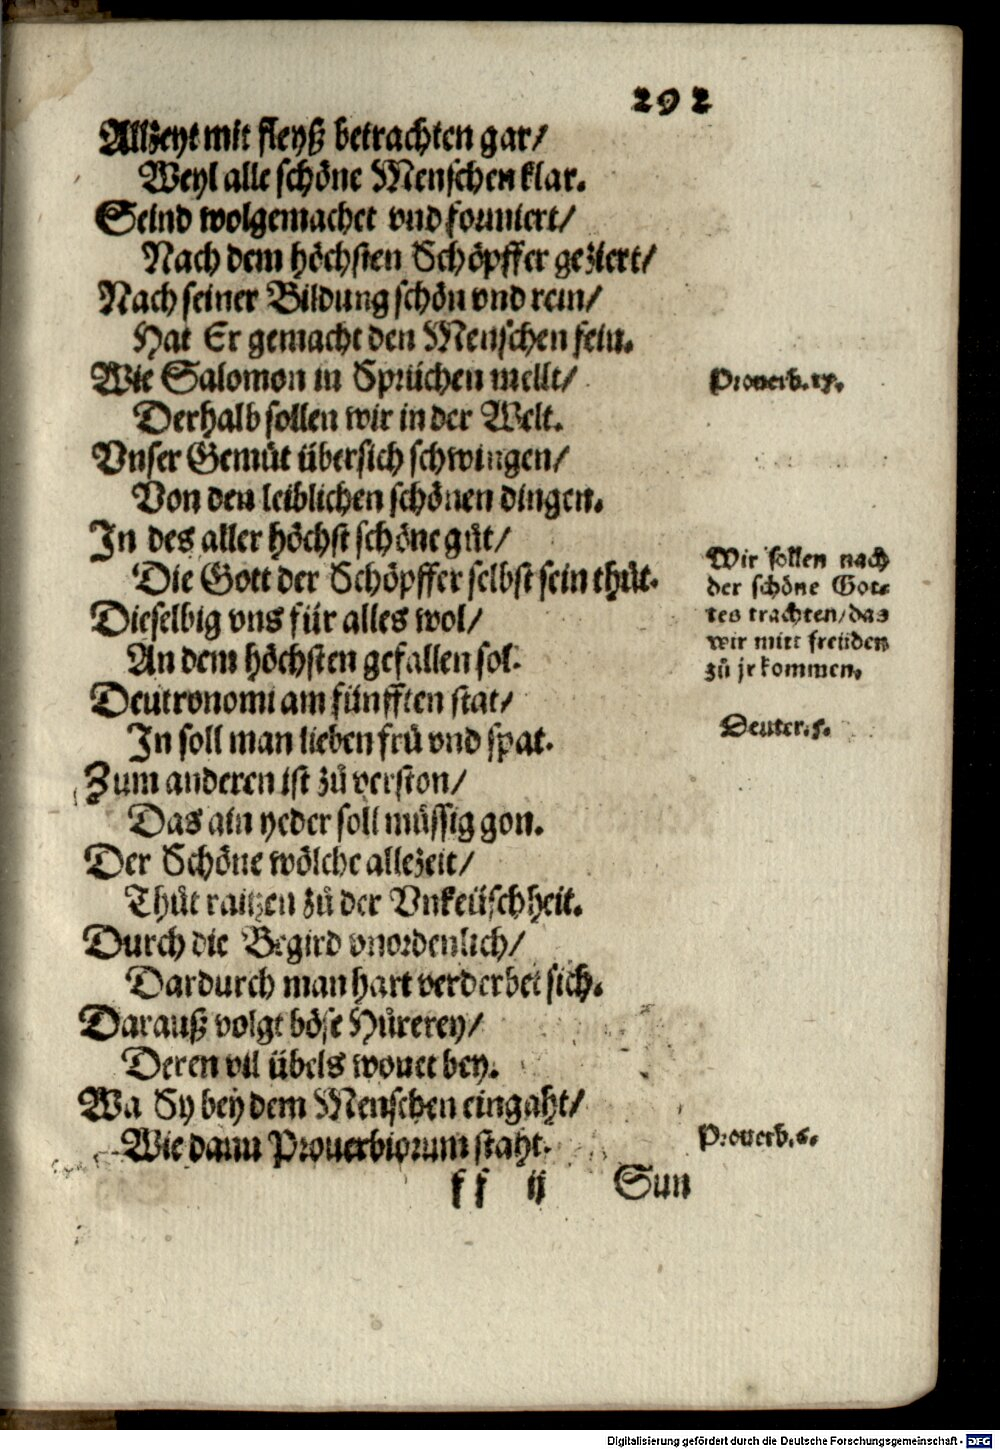 292
Allzeyt mit fleyß betrachten gar/
Weyl alle schöne Menschen klar.
Seind wolgemachet vnd formiert/
Nach dem höchsten Schöpffer geziert/
Nach seiner Bildung schön vnd rein/
Hat Er gemacht den Menschen fein.
Wie Salomon in Sprüchen mellt/
Proverb. 17.
Derhalb sollen wir in der Welt.
Vnser Gemüt übersich schwingen/
Von den leiblichen schönen dingen.
In des aller höchst schöne gůt/
Die Gott der Schöpffer selbst sein thůt.
Wir sollen nach
der schöne Got-
tes trachten/das
wir mitt freüden
zů jr kommen.
Dieselbig vns für alles wol/
An dem höchsten gefallen sol.
Deutronomi am fünfften stat/
Deuter. 5.
In soll man lieben frü vnd spat.
Zum anderen ist zů verston/
Das ain yeder soll müssig gon.
Der Schöne wölche allezeit/
Thůt raitzen zů der Vnkeüschheit.
Durch die Begird vnordenlich/
Dardurch man hart verderbet sich.
Darauß volgt böse Hůrerey/
Deren vil übels wonet bey.
Wa Sy bey dem Menschen eingaht/
Wie dann Prouerbiorum staht.
Prouerb. 6.
ff ij Sun
Digitalisierung gefördert durch die Deutsche Forschungsgemeinschaft - DFG